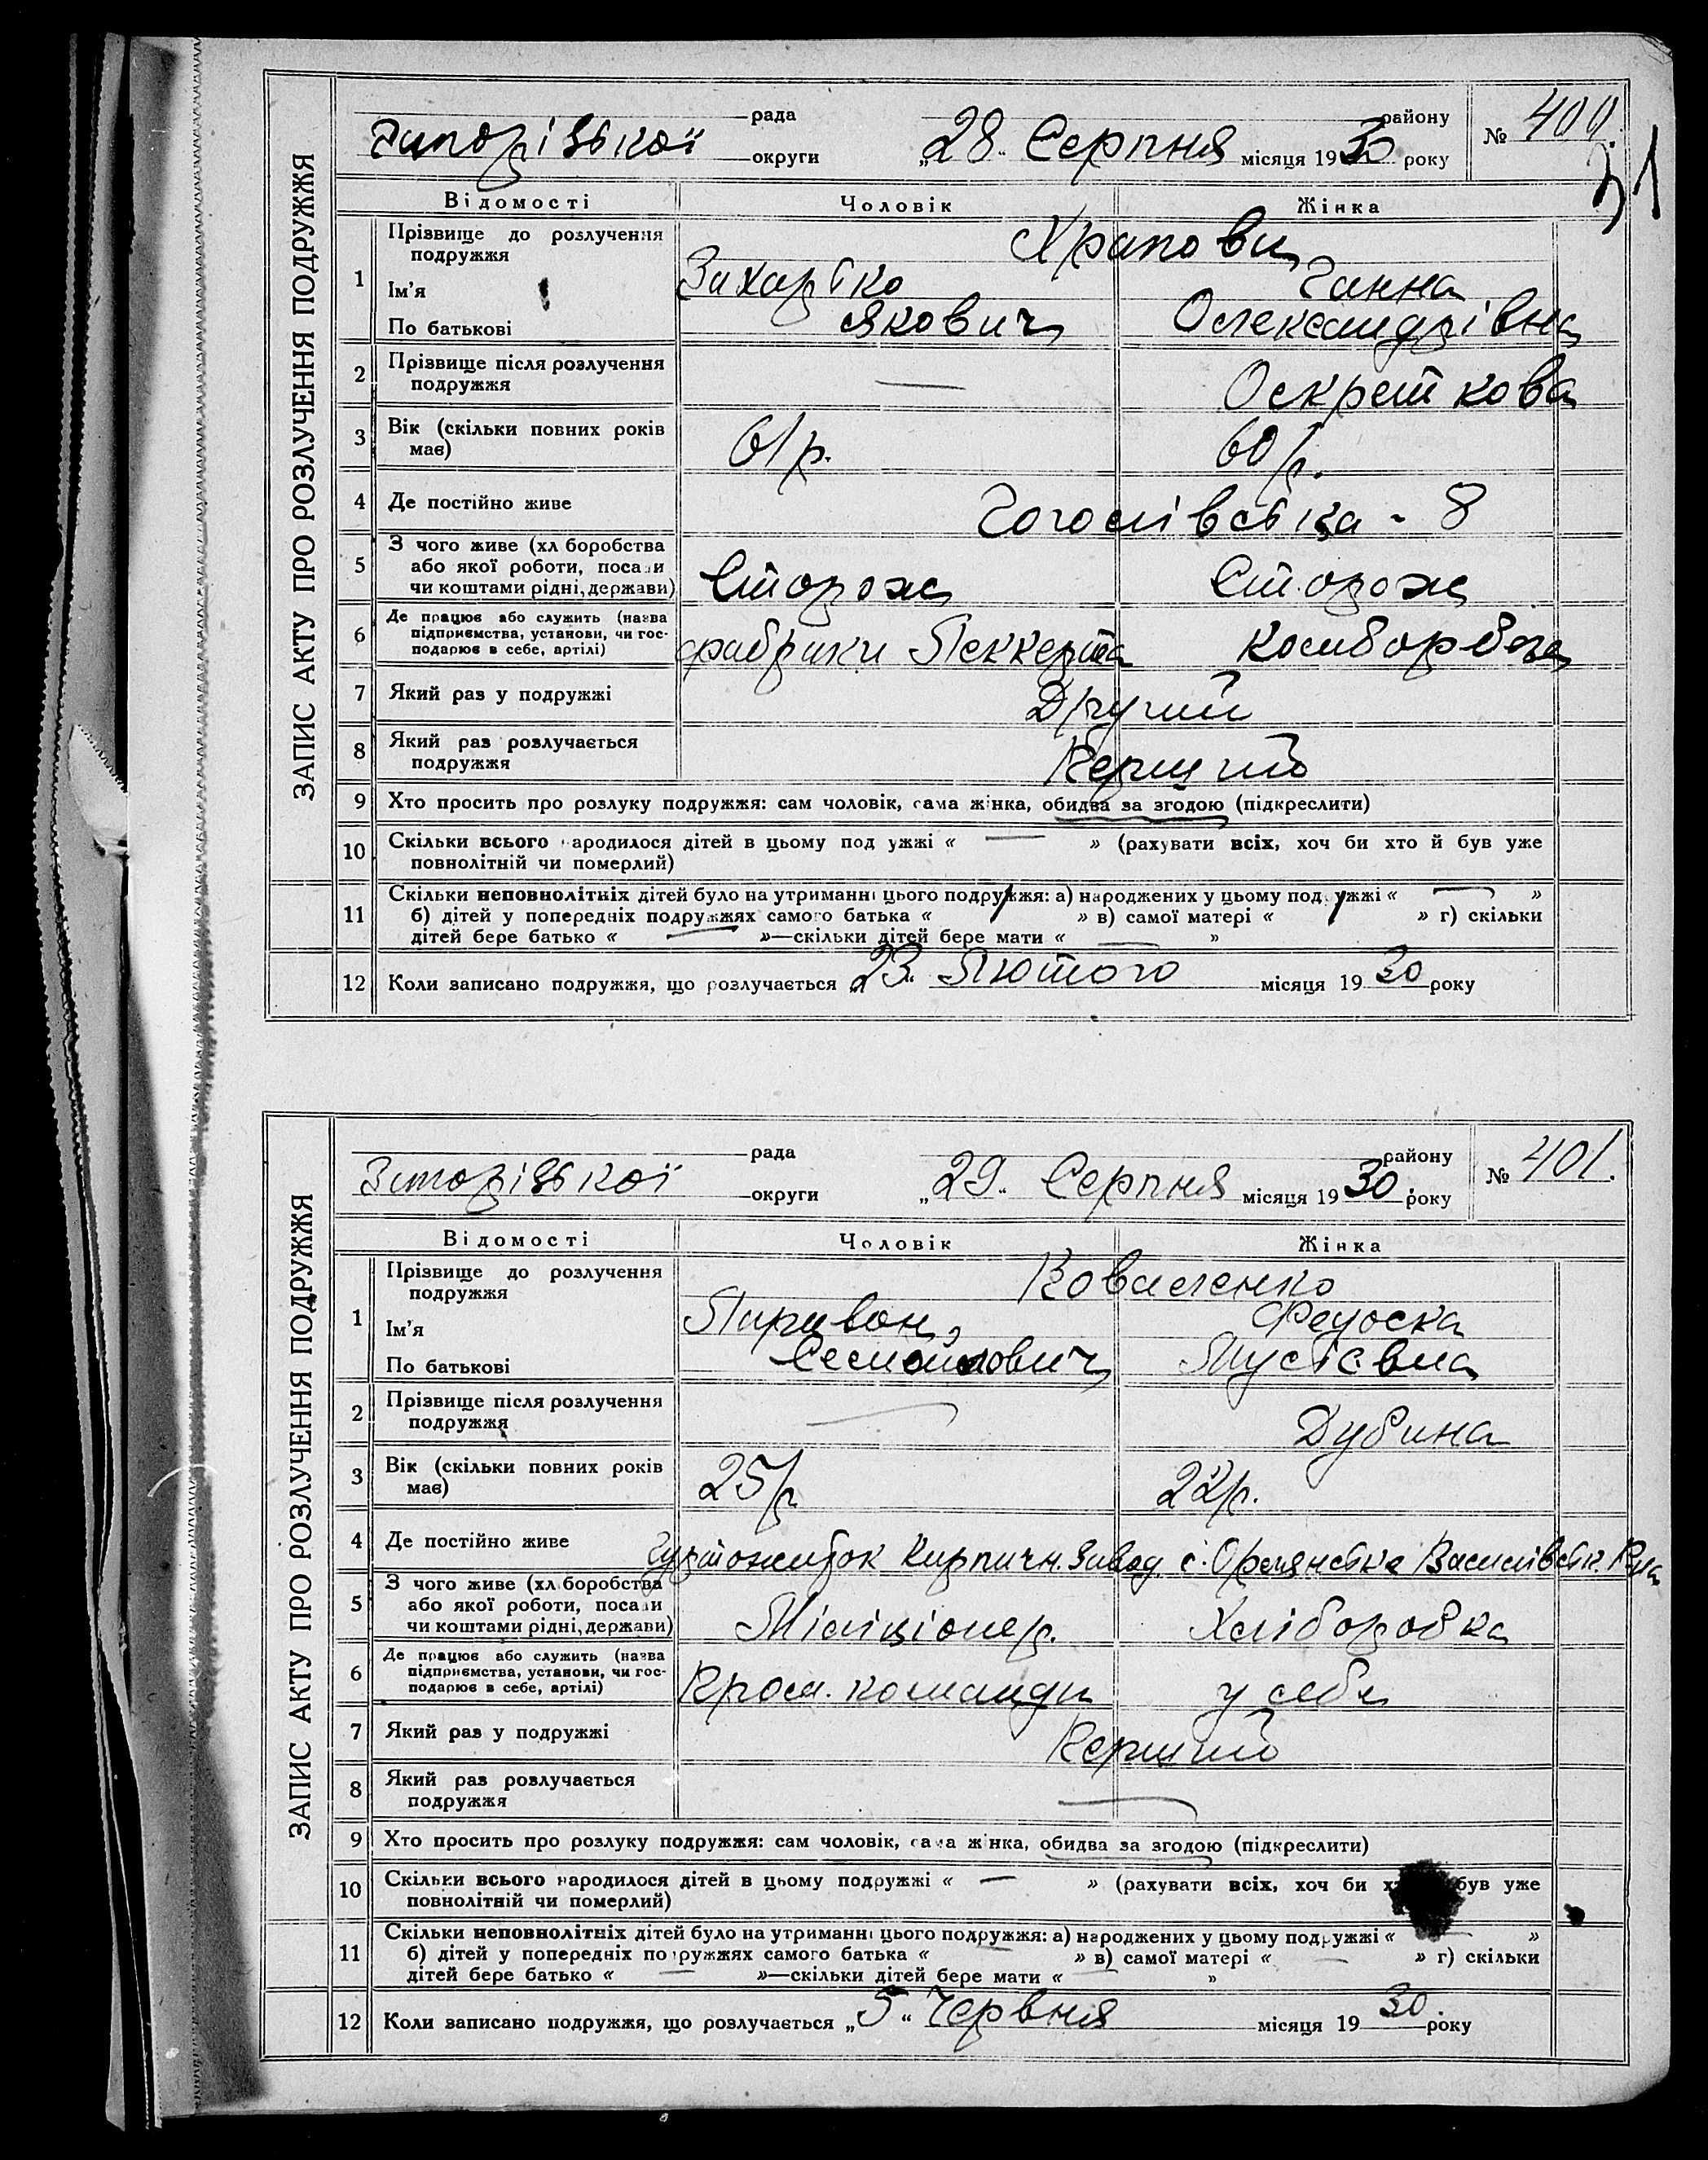 31
ЗАПИС АКТУ ПРО РОЗЛУЧЕННЯ ПОДРУЖЖЯ
рада району № 400.
Запорізької округи „28“ Серпня місяця 1930 року
Відомості Чоловік Жінка
1 Прізвище до розлучення подружжя Храпови
Ім'я Захарько Ганна
По батькові Якович Олександрівна
2 Прізвище після розлучення подружжя — Оскреткова
3 Вік (скільки повних років має) 61 р. 60 р.
4 Де постійно живе Гоголівська - 8
5 З чого живе (хлiборобства
або якої роботи, посади
чи коштами рідні, держави) Сторож Сторож
6 Де працює або служить (назва
підприємства, установи, чи гос-
подарює в себе, артілі) фабрики
7 Який раз у подружжі Другий
8 Який раз розлучається
подружжя Перший
9 Хто просить про розлуку подружжя: сам чоловік, сама жінка, обидва за згодою (підкреслити)
10 Скільки всього народилося дітей в цьому подружжі « — » (рахувати всіх, хоч би хто й був уже
повнолітній чи померлий)
11 Скільки неповнолітніх дітей було на утриманні цього подружжя: а) народжених у цьому подружжі « — »
б) дітей у попередніх подружжях самого батька « » в) самої матері « » г) скільки
дітей бере батько « — »—скільки дітей бере мати « — »
12 Коли записано подружжя, що розлучається „23“ Лютого місяця 1930 року
ЗАПИС АКТУ ПРО РОЗЛУЧЕННЯ ПОДРУЖЖЯ
рада району № 401.
Запорізької округи „29“ Серпня місяця 1930. року
Відомості Чоловік Жінка
1 Прізвище до розлучення
подружжя Коваленко
Ім'я Паривон, Федоска
По батькові Семойлович
2 Прізвище після розлучення
подружжя — Дубина
3 Вік (скільки повних років
має) 25 р. 22 р.
4 Де постійно живе Гуртожиток Кирпичн. Завод. с. Орлянське Василівськ. Р-на
5 З чого живе (хлiборобства
або якої роботи, посади
чи коштами рідні, держави) Міліціонер. Хліборобка
6 Де працює або служить (назва
підприємства, установи, чи гос-
подарює в себе, артілі) Пром. команди у себе
7 Який раз у подружжі Перший
8 Який раз розлучається
подружжя —
9 Хто просить про розлуку подружжя: сам чоловік, сама жінка, обидва за згодою (підкреслити)
10 Скільки всього народилося дітей в цьому подружжі « — » (рахувати всіх, хоч би був уже
повнолітній чи померлий)
11 Скільки неповнолітніх дітей було на утриманні цього подружжя: а) народжених у цьому подружжі « »
б) дітей у попередніх подружжях самого батька « — » в) самої матері « — » г) скільки
дітей бере батько « — »—скільки дітей бере мати « — »
12 Коли записано подружжя, що розлучається „5“ Червня місяця 1930. року